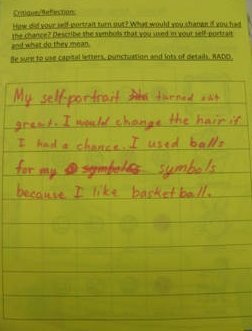 Critique/Reflection:
How did your self-portrait turn out? What would you change if you had
the chance? Describe the symbols that you used in your self-portrait
and what do they mean.
Be sure to use capital letters, punctuation and lots of details. RADD.
My self-portrait turned out
great. I would change the hair if
I had a chance. I used balls
for my symbols symbols
because I like basketball.